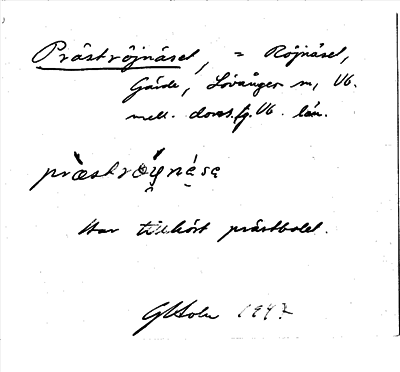 Präströjnäset, = Röjnäset,
Gärde, Lövånger sn, Vb.
mell. doms. Vb. län.
præstrøynése
Har tillhört prästbolet.
GHolm 1947